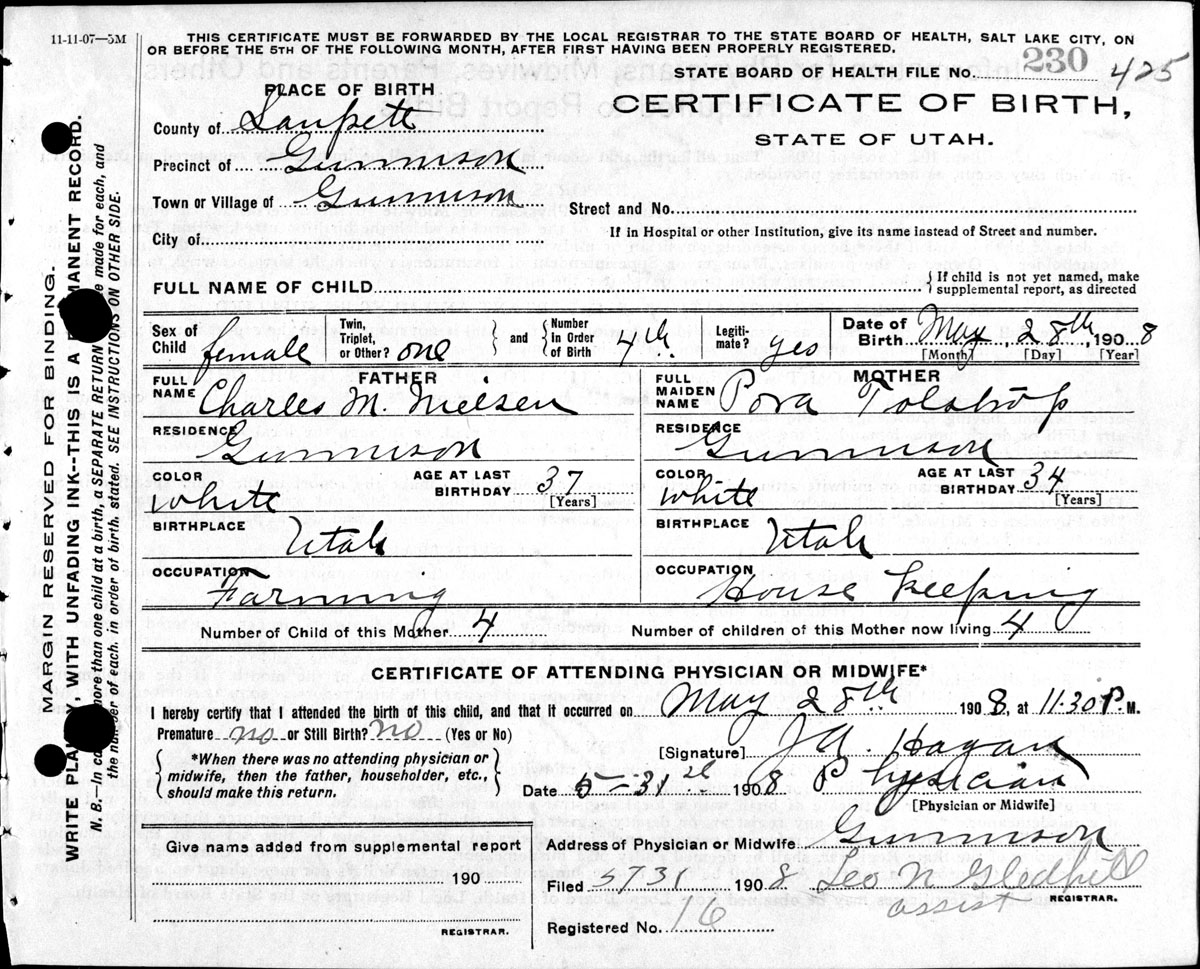 11-11-07—5M
THIS CERTIFICATE MUST BE FORWARDED BY THE LOCAL REGISTRAR TO THE STATE BOARD OF HEALTH, SALT LAKE CITY, ON
OR BEFORE THE 5TH OF THE FOLLOWING MONTH, AFTER FIRST HAVING BEEN PROPERLY REGISTERED.
STATE BOARD OF HEALTH FILE NO. 230 425
PLACE OF BIRTH
CERTIFICATE OF BIRTH,
STATE OF UTAH.
County of Sanpete
Precinct of Gunnison
Town or Village of Gunnison
Street and No.
City of
If in Hospital or other Institution, give its name instead of Street and number.
FULL NAME OF CHILD
{ If child is not yet named, make
supplemental report, as directed
Sex of Child female
Twin, Triplet, or Other? one } and { Number In Order of Birth 4th
Legiti-mate? yes
Date of Birth May 28th, 1908
[Month] [Day] [Year]
FATHER
FULL NAME Charles M. Nielsen
RESIDENCE Gunnison
COLOR White
AGE AT LAST BIRTHDAY 37 [Years]
BIRTHPLACE Utah
OCCUPATION Farming
MOTHER
FULL MAIDEN NAME
RESIDENCE Gunnison
COLOR White
AGE AT LAST BIRTHDAY 34 [Years]
BIRTHPLACE Utah
OCCUPATION House Keeping
Number of Child of this Mother 4 Number of children of this Mother now living 4
CERTIFICATE OF ATTENDING PHYSICIAN OR MIDWIFE*
I hereby certify that I attended the birth of this child, and that it occurred on May 28th 1908, at 11.30 P. M.
Premature no or Still Birth? no (Yes or No)
[Signature] J A. Hagan
{ *When there was no attending physician or
midwife, then the father, householder, etc.,
should make this return. }
Date 5-31st 1908 Physician
[Physician or Midwife]
Give name added from supplemental report
190
REGISTRAR.
Address of Physician or Midwife Gunnison
Filed 5/31 1908 Leo N Gledhill
assist REGISTRAR.
Registered No. 16
MARGIN RESERVED FOR BINDING.
WRITE WITH UNFADING INK--THIS IS A RECORD.
N. B.—In more than one child at a birth, a SEPARATE RETURN be made for each, and
the number of each, in order of birth, stated. SEE INSTRUCTIONS ON OTHER SIDE.